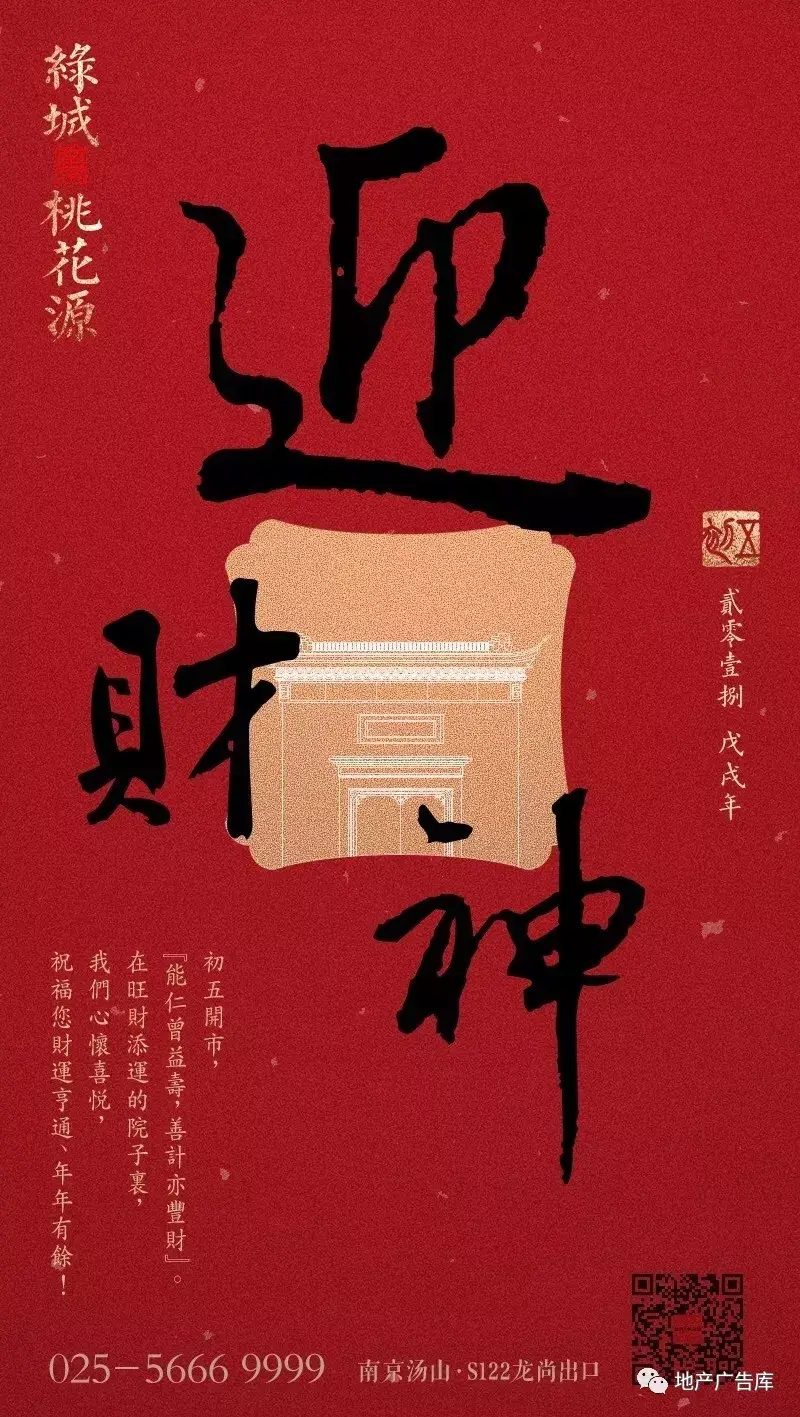 綠城
桃花源
迎
財
神
初五
貳零壹捌 戊戌年
初五開市，
『能仁曾益壽，善計亦豐財』。
在旺財添運的院子裏，
我們心懷喜悅，
祝福您財運亨通、年年有餘！
025-5666 9999
南京汤山·S122龙尚出口
地产广告库